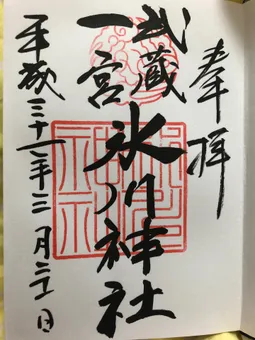 奉拝
武蔵
一宮
氷川神社
平成三十一年三月二十日